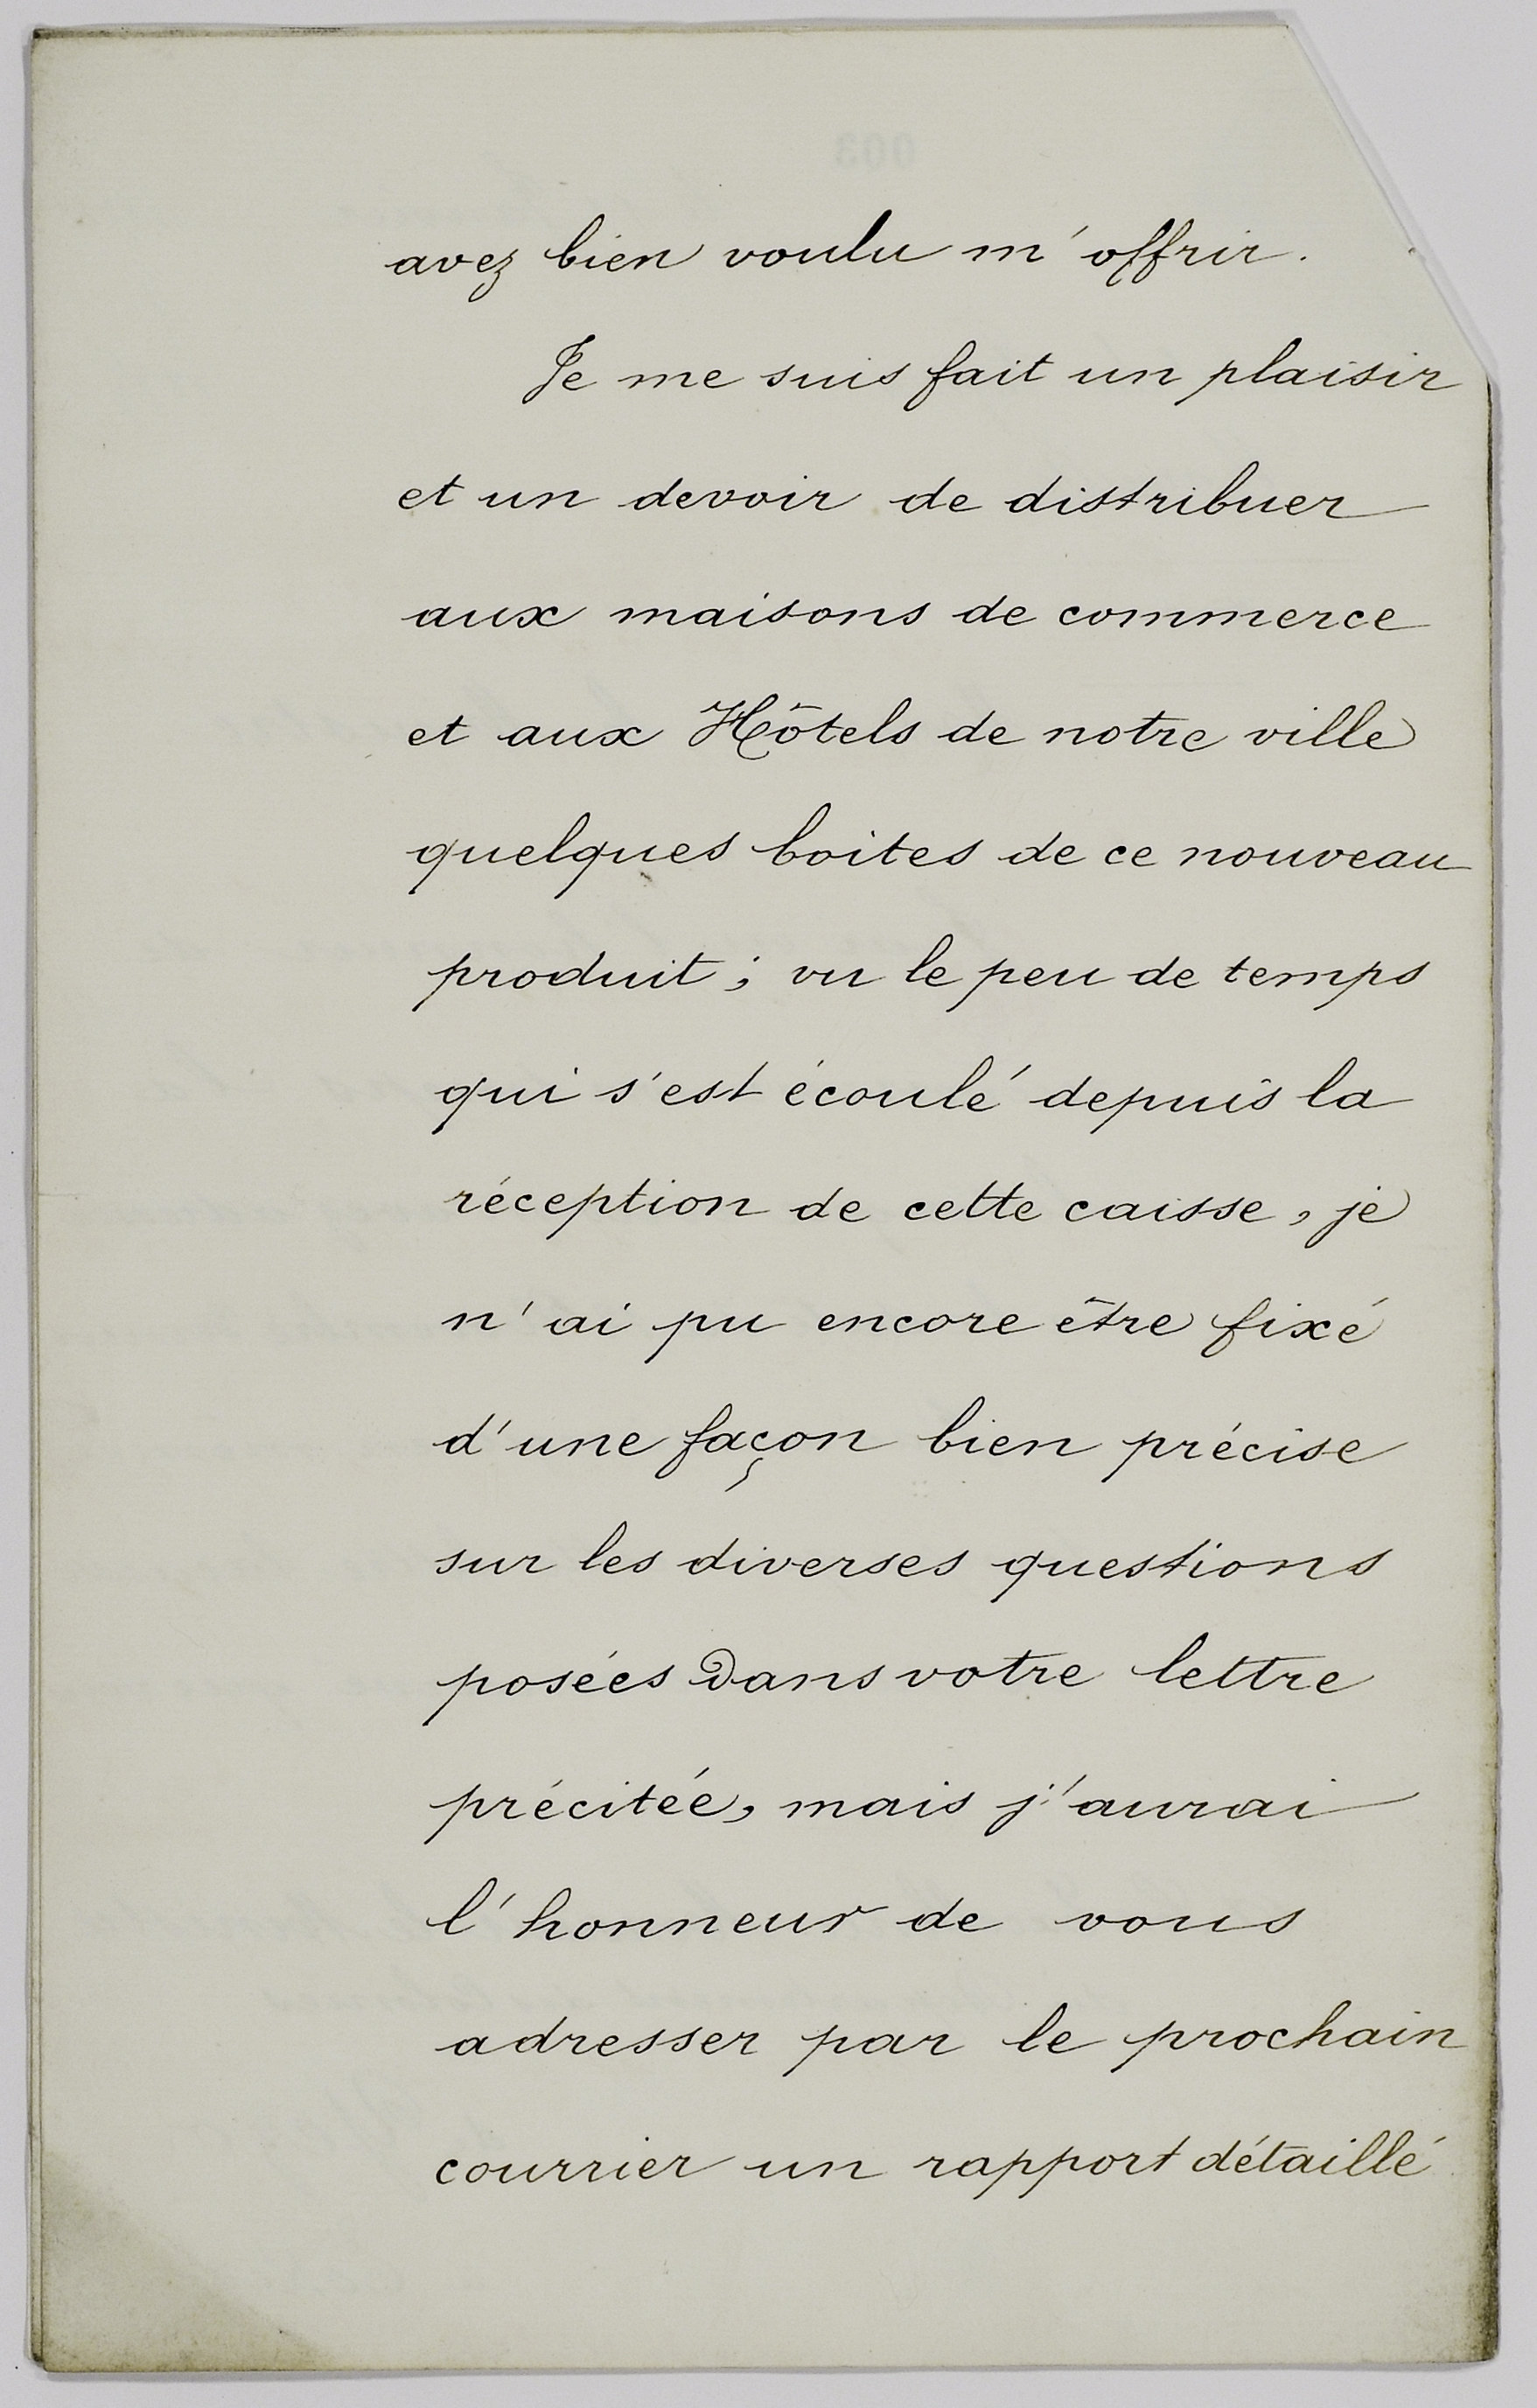 avez bien voulu m'offrir.
Je me suis fait un plaisir
et un devoir de distribuer
aux maisons de commerce
et aux Hôtels de notre ville
quelques boites de ce nouveau
produit ; vu le peu de temps
qui s'est écoulé depuis la
réception de cette caisse, je
n'ai pu encore être fixé
d'une façon bien précise
sur les diverses questions
posées dans votre lettre
précitée, mais j'aurai
l'honneur de vous
adresser par le prochain
courrier un rapport détaillé